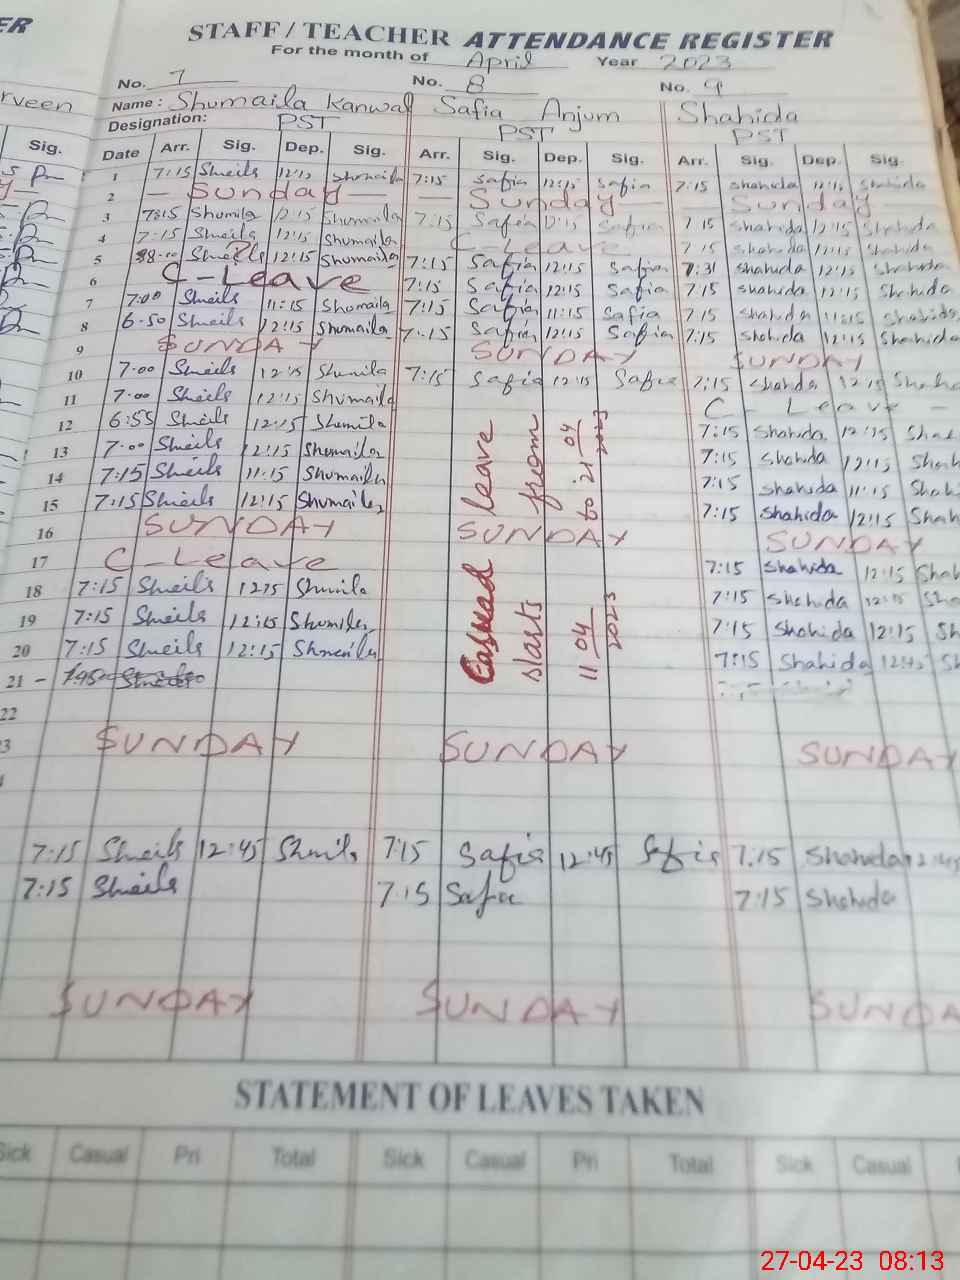 ER
STAFF / TEACHER ATTENDANCE REGISTER
For the month of April Year 2023
No. 7 No. 8 No. 9
rveen Name: Shumaila Kanwal Safia Anjum Shahida
Designation: PST PST PST
Sig. Date Arr. Sig. Dep. Sig. Arr. Sig. Dep. Sig. Arr. Sig. Dep. Sig.
1 7:15 Sheils 12:15 Shumaila 7:15 Safia 12:15 Safia 7:15 Shahida 12:15 Shahida
2 Sunday Sunday Sunday
3 7:15 Shumila 12:15 Shumaila 7:15 Safia Safia 7 15 Shahida 12:15 Shahida
4 7:15 Sheils 12:15 Shumaila C-Leave 7 15 Shahida 12:15 Shahida
5 Sheils 12:15 Shumaila 7:15 Safia 12:15 Safia 7:31 Shahida 12:15 Shahida
6 C-Leave 7:15 Safia 12:15 Safia 7:15 Shahida 12:15 Shahida
7 7:00 Sheils 11:15 Shumaila 7:15 Safia 11:15 Safia 7:15 Shahida 11:15 Shahida
8 6:50 Sheils 12:15 Shumaila 7:15 Safia 12:15 Safia 7:15 Shahida 12:15 Shahida
9 SUNDAY SUNDAY SUNDAY
10 7:00 Sheils 12:15 Shumila 7:15 Safia 12:15 Safia 7:15 Shahida 12:15 Shaha
11 7:00 Sheils 12:15 Shumaila C-Leave -
12 6:55 Sheils 12:15 Shumila 7:15 Shahida 12:15 Shah
13 7:00 Sheils 12:15 Shumaila 7:15 Shahida 12:15 Shah
14 7:15 Sheils 11:15 Shumaila 7:15 Shahida 11:15 Shah
15 7:15 Sheils 12:15 Shumaila 7:15 Shahida 12:15 Shah
16 SUNDAY SUNDAY SUNDAY
17 C-Leave 7:15 Shahida 12:15 Shah
18 7:15 Sheils 1215 Shumila 7:15 Shahida 12:15 Sha
19 7:15 Sheils 12:15 Shumila 7:15 Shahida 12:15 Sh
20 7:15 Sheils 12:15 Shumaila 7:15 Shahida 12:45 Sh
Casual leave
starts from
11 04 2023 to 21 04 2023
21 -
22
3 SUNDAY SUNDAY SUNDAY
7:15 Sheils 12:45 Shmila 7:15 Safia 12:45 Safia 7:15 Shahida 12:45
7:15 Sheils 7:15 Safia 7:15 Shahida
SUNDAY SUNDAY SUNDA
STATEMENT OF LEAVES TAKEN
Sick Casual Pri Total Sick Casual Pri Total Sick Casual
27-04-23 08:13